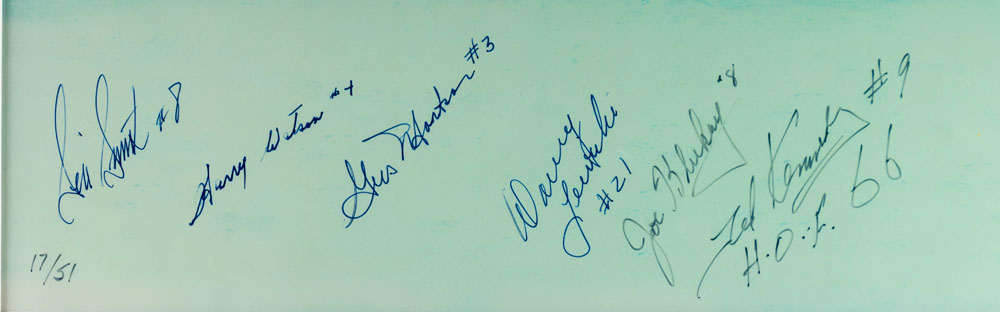 Sid Smith #8
Harry Watson #4
Gus Mortson #3
Danny
Lewicki
#21
Joe Klukay #8
Ted Kennedy #9
H.O.F. 66
17/51